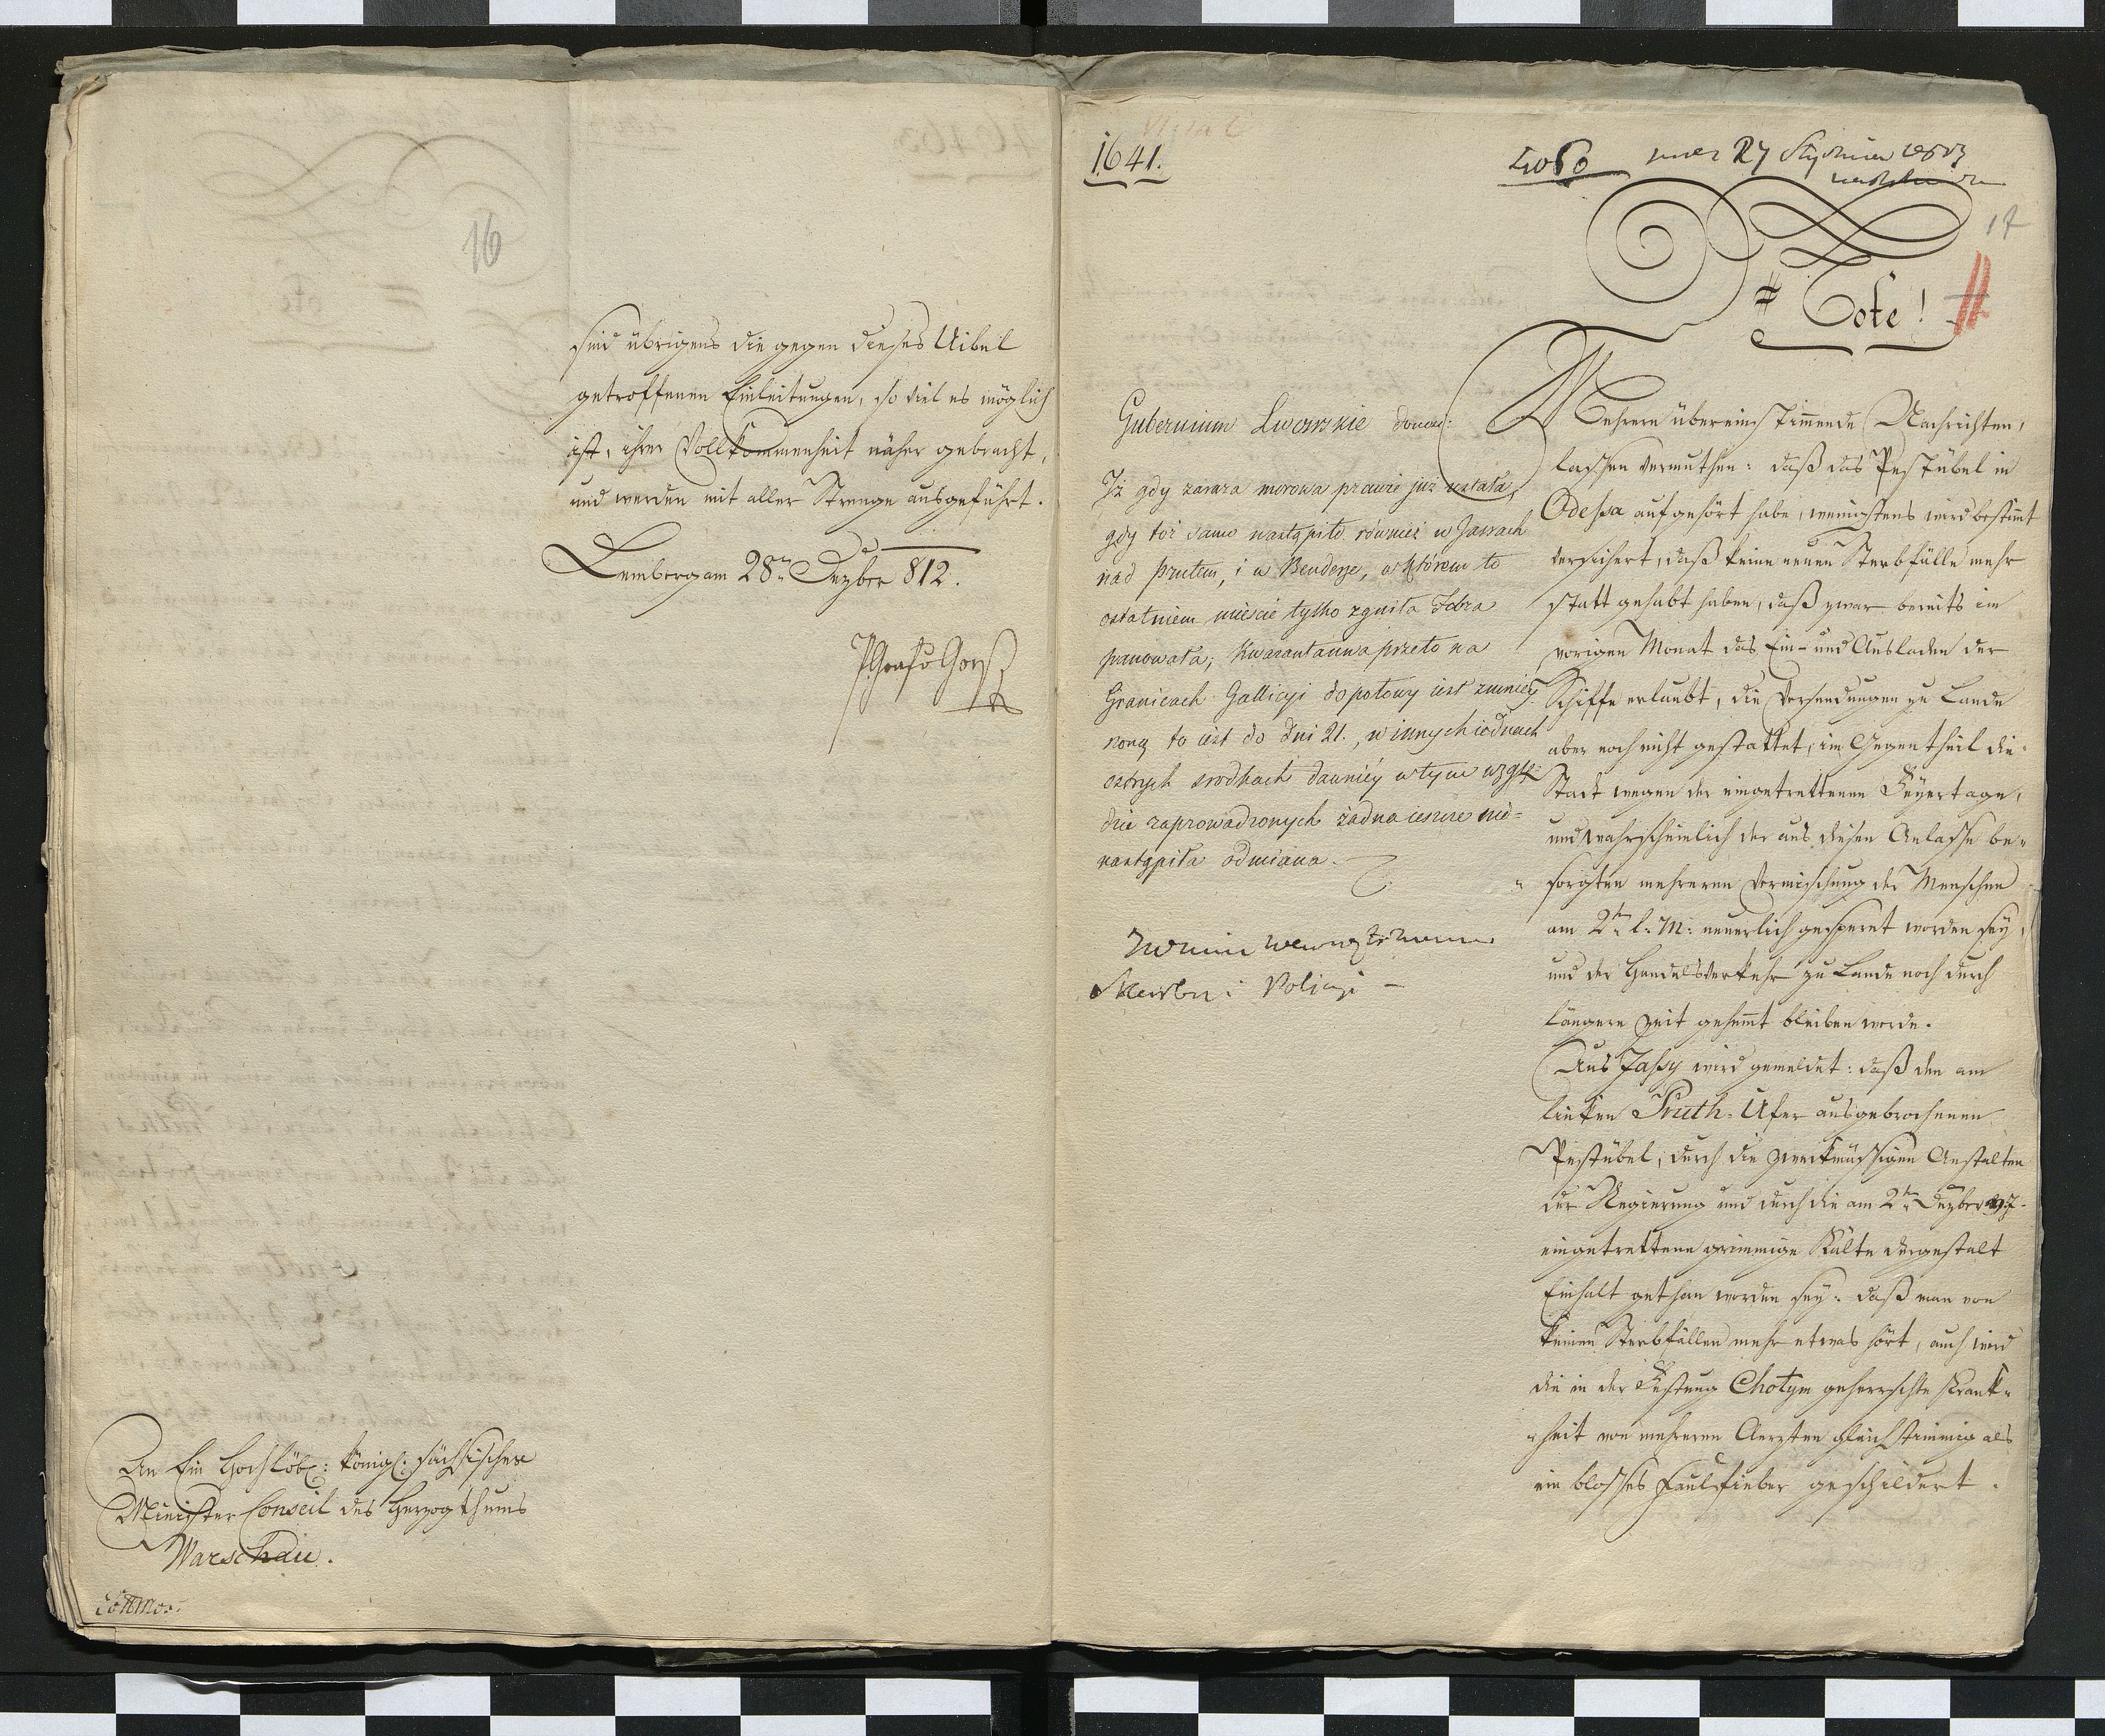 16
sind übrigens die gegen dieses Uibel
getroffenen Einleitungen, so viel es möglich
ist, ihrer Vollkommenheit näher gebracht,
und werden mit aller Strenge ausgeführt.
Lemberg am 28n Dezber 812.
An Ein Hochlöb: königl: sächsischen
Minister Conseil des Herzogthums
Warschau.
1641.
17
Note!
Gubernium Lwowskie donosi:
Iż gdy zaraza morowa prawie już ustała,
gdy toż samo nastąpiło również w Jassach
nad Prutem, i w Benderze, w którem to
ostatniem mieście tylko zgniła Febra
panowała; Kwarantanna przeto na
Granicach Gallicyi do połowy iest zmniey
szoną to iest do dni 21., w innych iednach
ostrych srodkach dawniéy w tym wzglę
dzie zaprowadzonych żadna ieszcze nie=
nastąpiła odmiana.
Skarbu i Policyi –
Mehrere übereinstimmende Nachrichten,
lassen vermuthen: daß das Pestübel in
Odessa aufgehört habe, wenigstens wird bestimt
versichert, daß keine neuen Sterbfälle mehr
statt gehabt haben, daß zwar bereits im
vorigen Monat das Ein- und Ausladen der
Schiffe erlaubt, die Versendungen zu Lande
aber noch nicht gestattet, im Gegentheil die
Stadt wegen der eingetrettenen Feyertage,
und wahrscheinlich der aus diesen Anlasse be-
sorgten mehreren Vermischung der Menschen
am 2tn l: M: neuerlich gesperrt worden sey,
und der Handelsverkehr zu Lande noch durch
längere Zeit gehemt bleiben werde.
Aus Jassy wird gemeldet: daß den am
linken Pruth-Ufer ausgebrochenen
Pestübel, durch die zweckmässigen Anstalten
der Regierung und durch die am 2tn Dezber
eingetrettene grimmige Kälte dergestalt
Einhalt gethan worden sey: daß man von
keinen Sterbfällen mehr etwas hört, auch wird
die in der Festung Chotym geherrschte Krank-
heit von mehreren Aerzten gleichstimmig als
ein blosses Faulfieber geschildert.